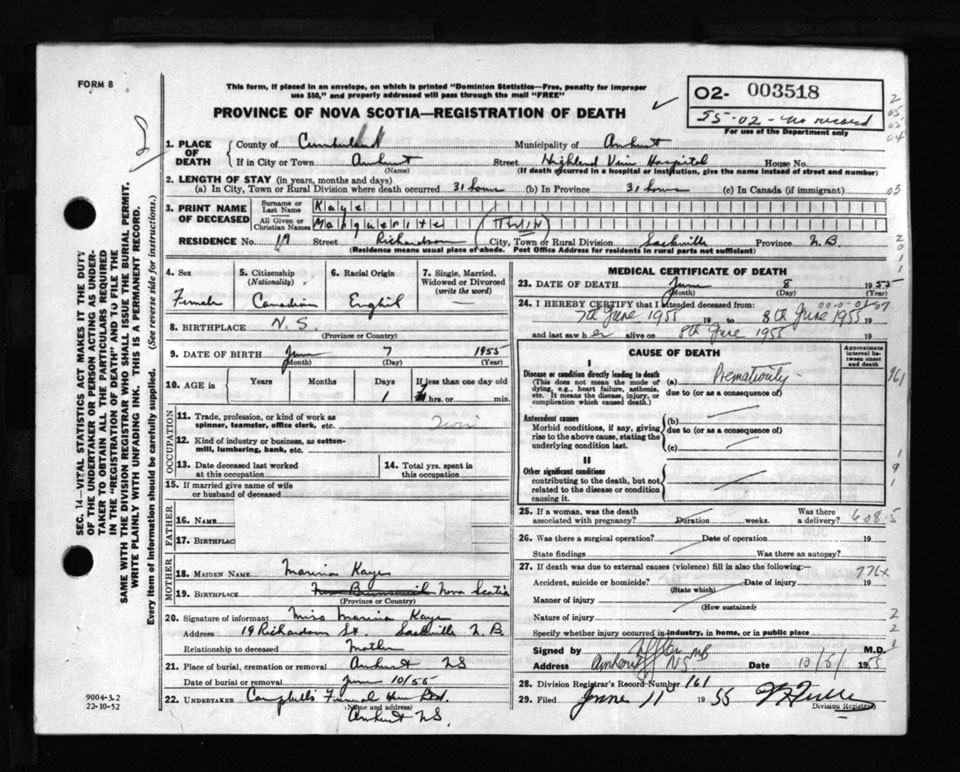 FORM 8
This form, if placed in an envelope, on which is printed "Dominion Statistics—Free, penalty for improper
use $50," and properly addressed will pass through the mail "FREE"
PROVINCE OF NOVA SCOTIA—REGISTRATION OF DEATH
02- 003518
55-02-no record
For use of the Department only
1. PLACE OF DEATH
County of Cumberland Municipality of Amherst
If in City or Town Amherst Street Highland View Hospital House No.
(Name) (If death occurred in a hospital or institution, give the name instead of street and number)
2. LENGTH OF STAY (in years, months and days)
(a) In City, Town or Rural Division where death occurred 31 hours (b) In Province 31 hours (c) In Canada (if immigrant)
3. PRINT NAME OF DECEASED
Surname or Last Name Kaye
All Given or Christian Names Marguerite (TWIN)
RESIDENCE No. 19 Street Richardson City, Town or Rural Division Sackville Province N.B.
(Residence means usual place of abode. Post Office Address for residents in rural parts not sufficient)
4. Sex Female
5. Citizenship (Nationality) Canadian
6. Racial Origin English
7. Single, Married, Widowed or Divorced (write the word)
8. BIRTHPLACE N.S.
(Province or Country)
9. DATE OF BIRTH June 7 1955
(Month) (Day) (Year)
10. AGE in Years Months Days If less than one day old
1 hrs. or min.
OCCUPATION
11. Trade, profession, or kind of work as
spinner, teamster, office clerk, etc.
12. Kind of industry or business, as cotton-
mill, lumbering, bank, etc.
13. Date deceased last worked
at this occupation
14. Total yrs. spent in
this occupation
15. If married give name of wife
or husband of deceased
FATHER
16. NAME
17. BIRTHPLAC
MOTHER
18. MAIDEN NAME Marina Kaye
19. BIRTHPLACE New Brunswick Nova Scotia
(Province or Country)
20. Signature of informant Miss Marina Kaye
Address 19 Richardson St. Sackville N.B.
Relationship to deceased Mother
21. Place of burial, cremation or removal Amherst NS
Date of burial or removal June 10/55
22. UNDERTAKER Campbell's Funeral Home Ltd.
(Name and address)
Amherst NS.
MEDICAL CERTIFICATE OF DEATH
23. DATE OF DEATH June 8 1955
(Month) (Day) (Year)
24. I HEREBY CERTIFY that I attended deceased from:
7th June 1955 19 to 8th June 1955 19
and last saw her alive on 8th June 1955 19
CAUSE OF DEATH
Approximate interval between onset and death
I
Disease or condition directly leading to death
(This does not mean the mode of
dying, e.g., heart failure, asthenia,
etc. It means the disease, injury, or
complication which caused death.)
(a) Prematurity
due to (or as a consequence of)
Antecedent causes
Morbid conditions, if any, giving
rise to the above cause, stating the
underlying condition last.
(b)
due to (or as a consequence of)
(c)
II
Other significant conditions
contributing to the death, but not
related to the disease or condition
causing it.
25. If a woman, was the death
associated with pregnancy? Duration weeks. Was there
a delivery?
608.5
26. Was there a surgical operation? Date of operation 19
State findings Was there an autopsy?
27. If death was due to external causes (violence) fill in also the following:
776x
Accident, suicide or homicide? Date of injury 19
(State which)
Manner of injury
(How sustained)
Nature of injury
Specify whether injury occurred in industry, in home, or in public place
Signed by M.D.
Address Amherst NS Date 10/6/ 1955
28. Division Registrar's Record Number 161
29. Filed June 11 1955
Division Registrar
SEC. 14—VITAL STATISTICS ACT MAKES IT THE DUTY
OF THE UNDERTAKER OR PERSON ACTING AS UNDER-
TAKER TO OBTAIN ALL THE PARTICULARS REQUIRED
IN THE "REGISTRATION OF DEATH" AND TO FILE THE
SAME WITH THE DIVISION REGISTRAR WHO SHALL ISSUE THE BURIAL PERMIT.
WRITE PLAINLY WITH UNFADING INK. THIS IS A PERMANENT RECORD.
Every item of information should be carefully supplied. (See reverse side for instructions.)
9004-3.2
22-10-52